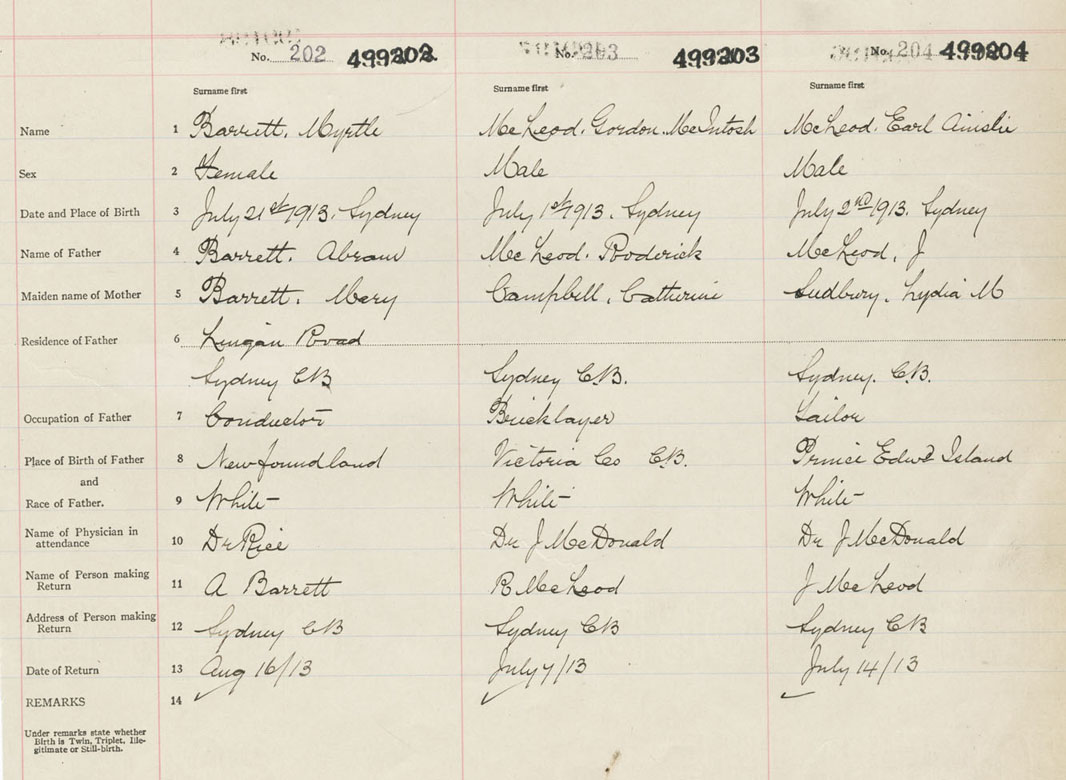 No. 202 499202 No. 203 499203 No. 204 499204
Surname first Surname first Surname first
Name 1 Barrett. Myrtle McLeod. Gordon. McIntosh McLeod. Earl Ainslie
Sex 2 Female Male Male
Date and Place of Birth 3 July 21st 1913. Sydney July 1st 1913. Sydney July 2nd 1913. Sydney
Name of Father 4 Barrett. Abram McLeod. Roderick McLeod, J
Maiden name of Mother 5 Barrett. Mary Campbell, Catherine Sudbury. Lydia M
Residence of Father 6 Lingan Road
Sydney CB Sydney C.B. Sydney. C.B.
Occupation of Father 7 Conductor Bricklayer Tailor
Place of Birth of Father 8 Newfoundland Victoria Co C.B. Prince Edwd Island
and
Race of Father. 9 White White White
Name of Physician in
attendance 10 Dr Rice Dr J McDonald Dr J McDonald
Name of Person making
Return 11 A Barrett R McLeod J McLeod
Address of Person making
Return 12 Sydney CB Sydney CB Sydney CB
Date of Return 13 Aug 16/13 July 7/13 July 14/13
REMARKS 14
Under remarks state whether
Birth is Twin, Triplet, Ille-
gitimate or Still-birth.